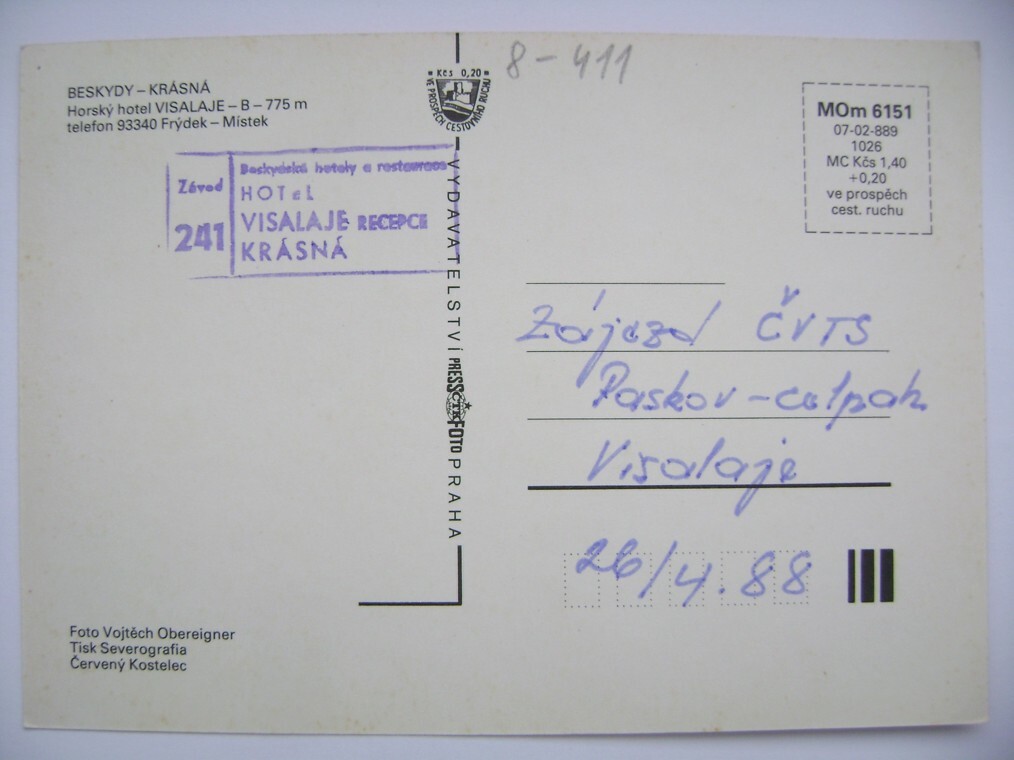 BESKYDY – KRÁSNÁ
Horský hotel VISALAJE – B – 775 m
telefon 93340 Frýdek – Místek
Kčs 0,20
VE PROSPĚCH CESTOVNÍHO RUCHU
8-411
MOm 6151
07-02-889
1026
MC Kčs 1,40
+0,20
ve prospěch
cest. ruchu
Závod
241
Beskydské hotely a restaurace
HOTEL
VISALAJE RECEPCE
KRÁSNÁ
VYDAVATELSTVÍ PRESSFOTO PRAHA
ČTK
Zájezd ČVTS
Paskov - celpak
Visalaje
26/4.88
Foto Vojtěch Obereigner
Tisk Severografia
Červený Kostelec